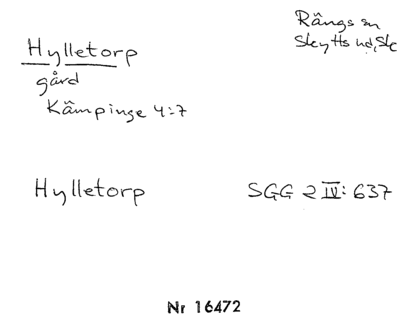 Hylletorp
Rängs sn
Skytts hd, Sk
gård
Kämpinge 4:7
Hylletorp SGG 2 IV: 637
Nr 16472